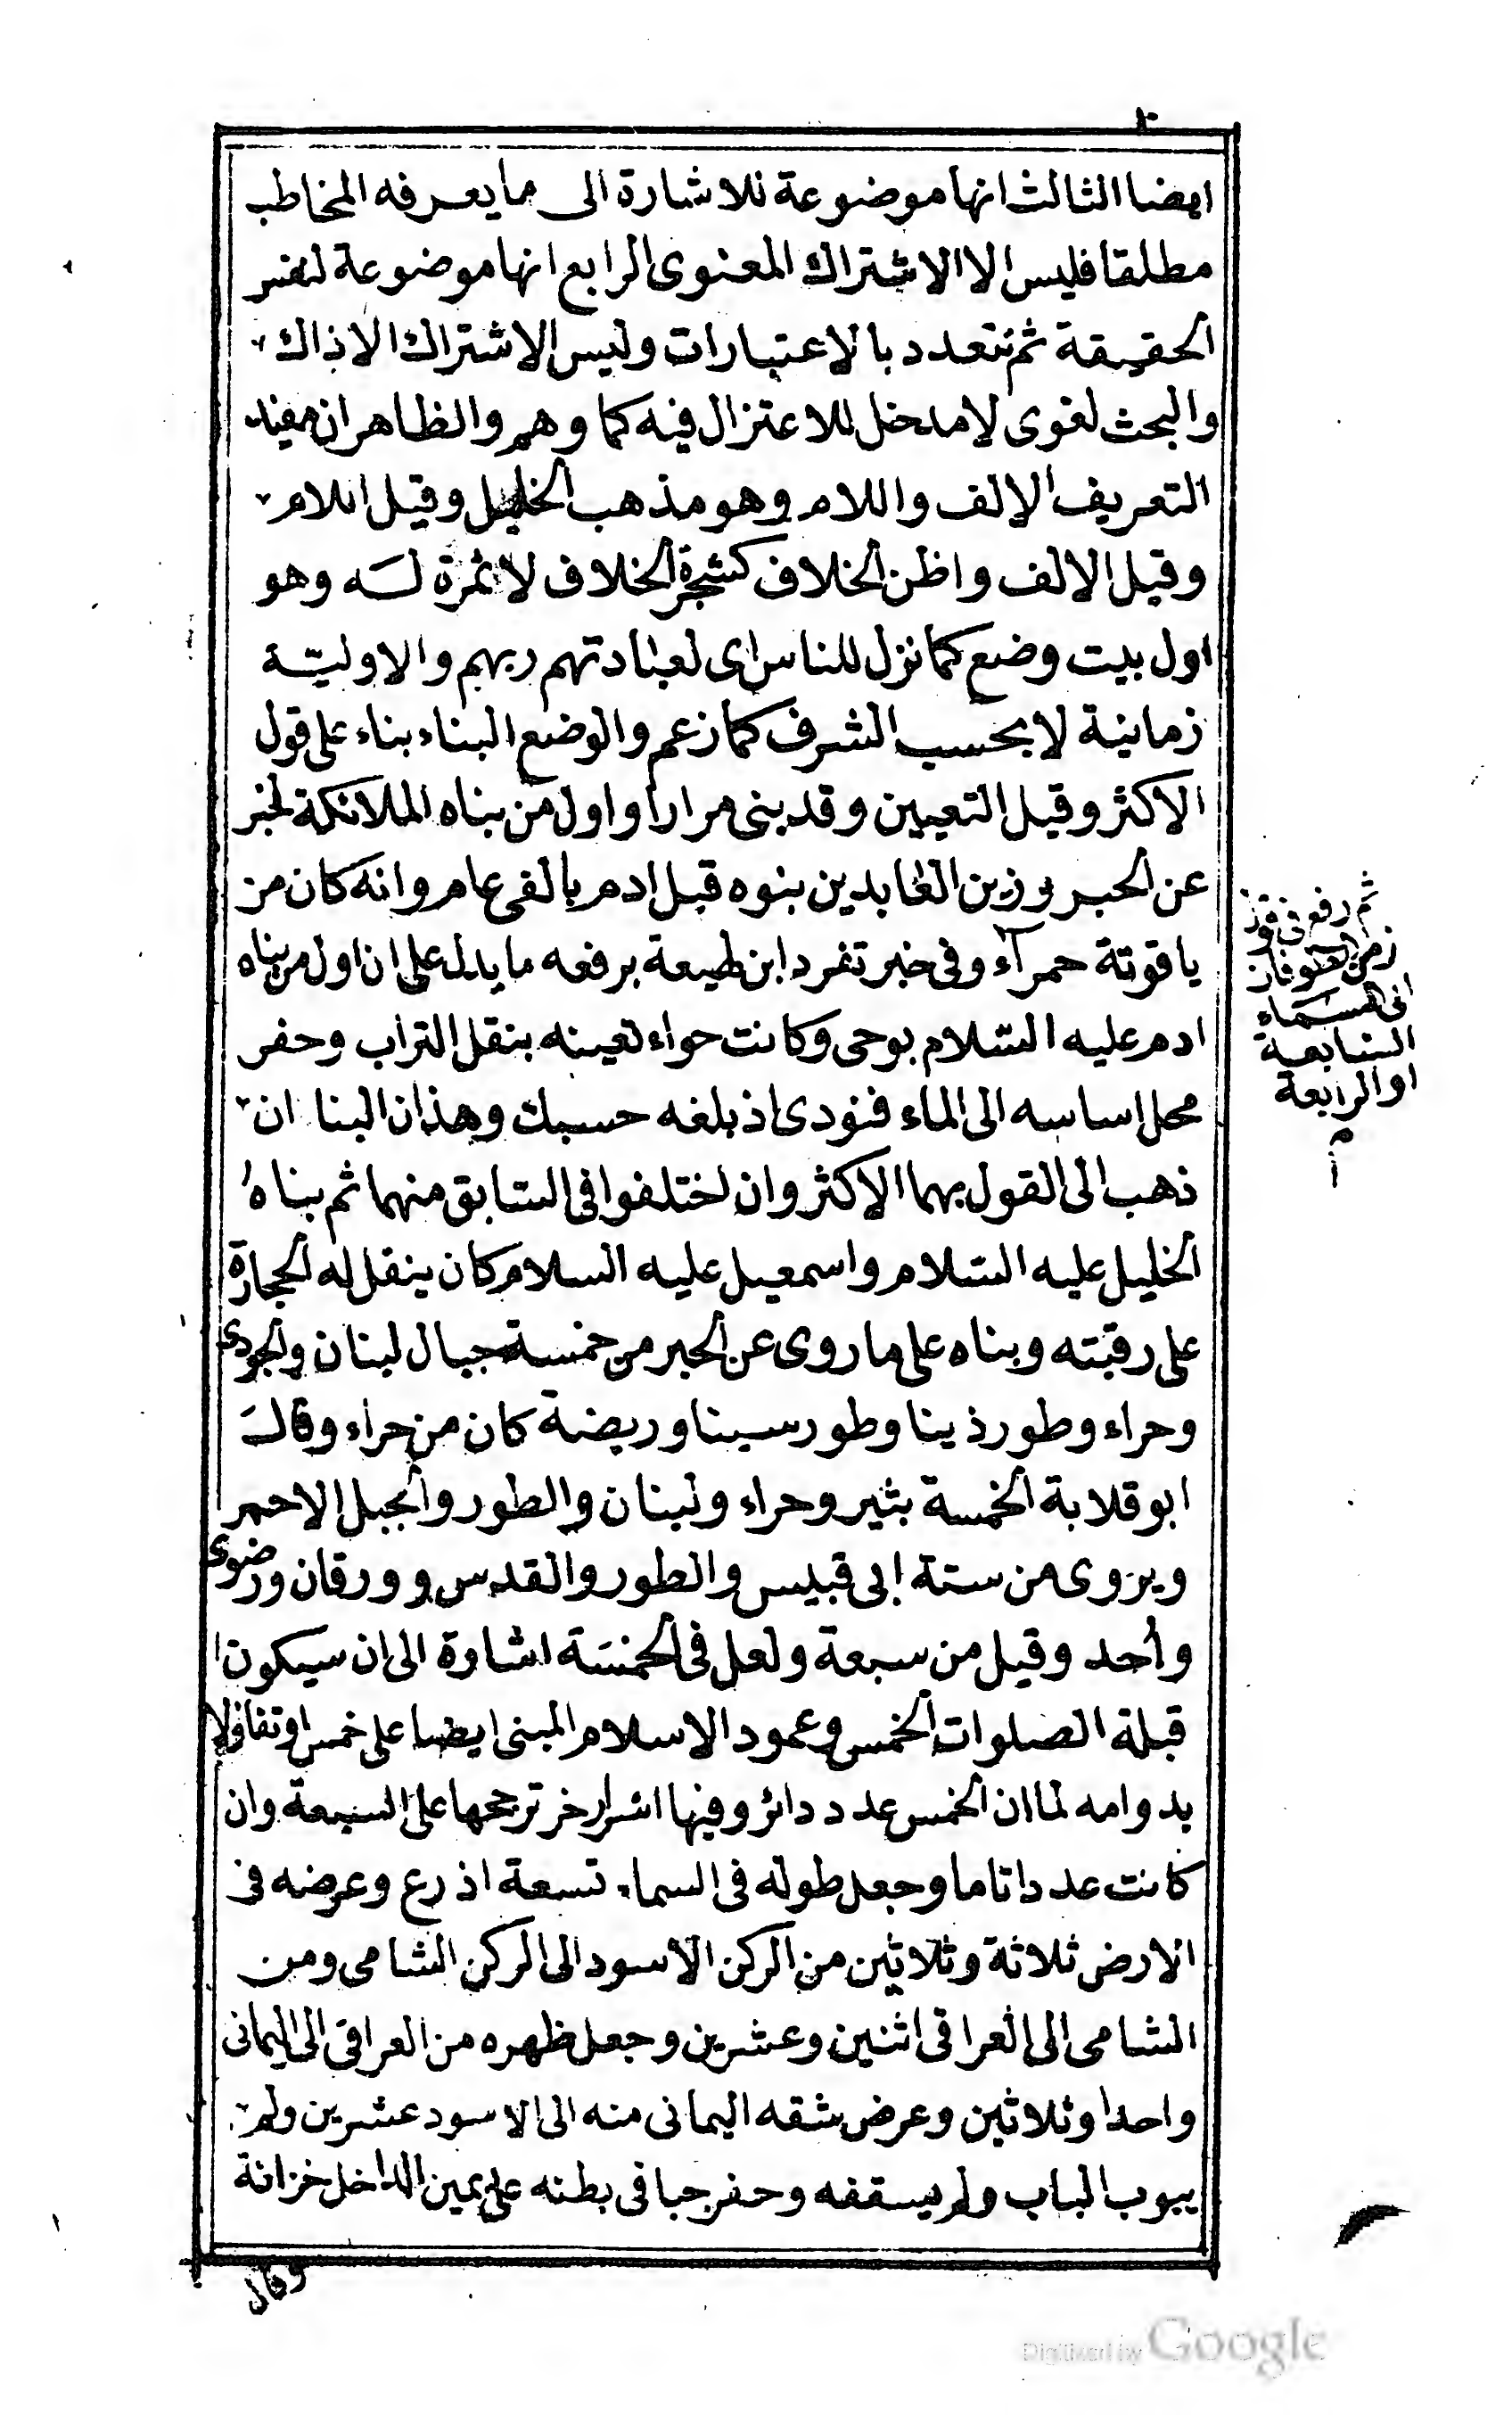 ايضا الثالث انها موضوعة للاشارة الى ما يعرفه المخاطب
مطلقا فليس الا الاشتراك المعنوى الرابع انها موضوعة لنفس
الحقيقة ثم تتعدد بالاعتبارات وليس الاشتراك الا ذاك
والبحث لغوى لا مدخل للاعتزال فيه كما وهم والظاهر ان مفيد
التعريف الالف واللام وهو مذهب الخليل وقيل اللام
وقيل الالف واظن الخلاف كشجرة الخلاف لا ثمرة له وهو
اول بيت وضع كما نزل للناس اى لعبادتهم ربهم والاوليّة
زمانية لا بحسب الشرف كما زعم والوضع البناء بناء على قول
الاكثر وقيل التعيين وقد بنى مرارا واول من بناه الملائكة لخبر
عن الحبر وزين العابدين بنوه قبل ادم بالفى عام وانه كان من
ياقوتة حمرآء وفى خبر تفرد ابن لهيعة برفعه ما يدل على ان اول من بناه
ادم عليه السّلام بوحى وكانت حواء تعينه بنقل التراب وحفر
محل اساسه الى الماء فنودى اذ بلغه حسبك وهذان البناان
ذهب الى القول بهما الاكثر وان اختلفوا فى السابق منهما ثم بناهُ
الخليل عليه السّلام واسمعيل عليه السلام كان ينقل له الحجارة
على رقبته وبناه على ما روى عن الحبر من خمسة جبال لبنان والجودى
وحراء وطور ذينا وطور سينا وربضه كان من حراء وقال
ابو قلابة الخمسة بثير وحراء ولبنان والطور والجبل الاحمر
ويروى من ستة ابى قبيس والطور والقدس وورقان ورضوى
وأحد وقيل من سبعة ولعل فى الخمسَة اشاوة الى ان سيكون
قبلة الصلوات الخمس وعمود الاسلام المبنى ايضا على خمس او تفاؤلا
بدوامه لما ان الخمس عدد دائر وفيها اسرار اخر ترجحها على السبعة وان
كانت عددا تاما وجعل طوله فى السماء تسعة اذرع وعرضه فى
الارض ثلاثة وثلاثين من الركن الاسود الى الركن الشامى ومن
الشامى الى العراقى اثنين وعشرين وجعل ظهره من العراقى الى اليمانى
واحدا وثلاثين وعرض شقه اليمانى منه الى الاسود عشرين ولم
يبوب الباب ولم يسقفه وحفر جبا فى بطنه على يمين الداخل خزانة
وكان
ثم رفع
زمن الطوفان
الى السماء
السابعة
او الرابعة
Digitized by Google